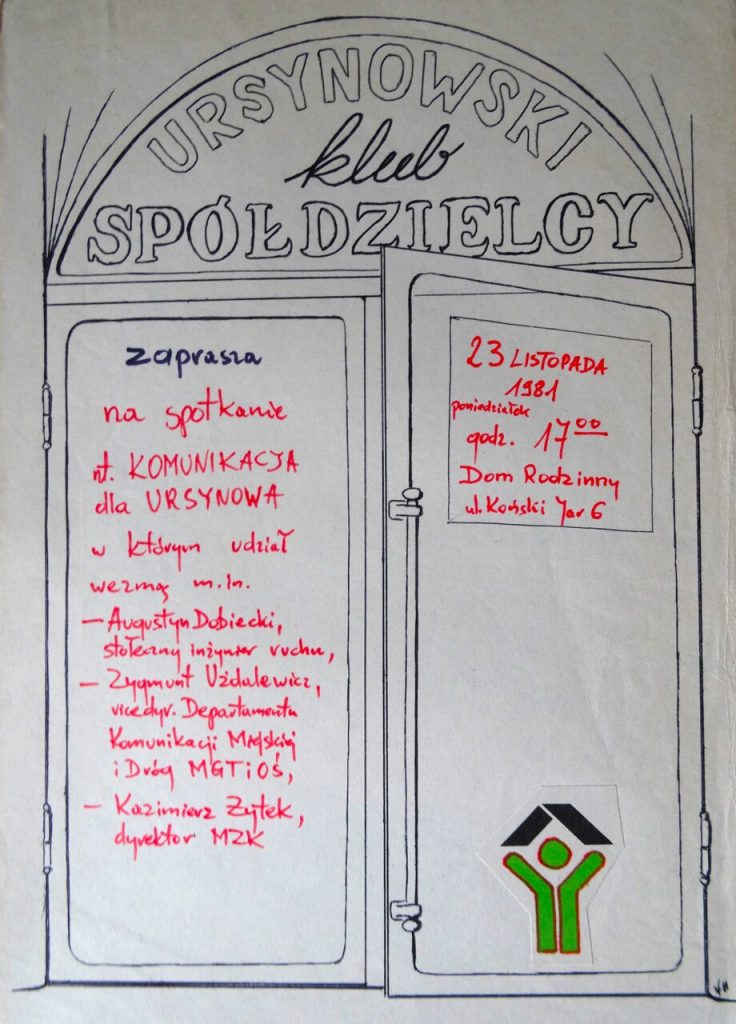 URSYNOWSKI
klub
SPÓŁDZIELCY
zaprasza
na spotkanie
nt. KOMUNIKACJA
dla URSYNOWA
w którym udział
wezmą m.in.
– Augustyn Dobiecki,
stołeczny inżynier ruchu,
– Zygmunt Użdalewicz,
vicedyr. Departamentu
Komunikacji Miejskiej
i Dróg MGTiOŚ,
– Kazimierz Żytek,
dyrektor MZK
23 LISTOPADA
1981
poniedziałek
godz. 17⁰⁰
Dom Rodzinny
ul. Koński Jar 6